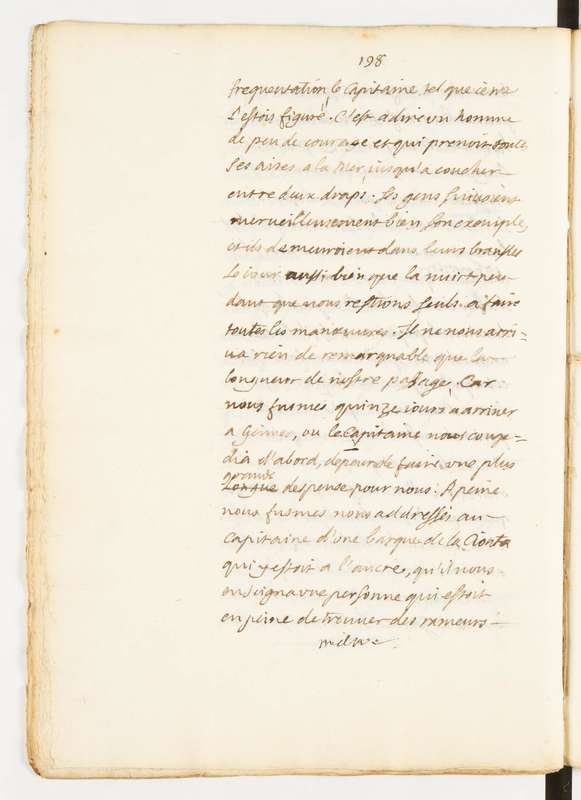 198
frequentation le Capitaine, tel que ie me
l'estois figuré. C'est a dire vn homme
de peu de courage et qui prenoit toutes
ses aises a la Mer, iusqu'a coucher
entre deux draps. Ses gens suiuoient
merueilleusement bien son exemple,
et ils demeuroient dans leurs bransles
le iour aussi bien que la nuit pen-
dant que nous restions seuls a faire
toutes les manœuvres. Il ne nous arri-
ua rien de remarquable que la
longueur de nostre passage. Car
nous fusmes quinze iours a arriuer
a Gennes, ou le Capitaine nous conge-
dia d'abord, de peur de faire vne plus
grande
longue despense pour nous. A peine
nous fusmes nous addressés au
Capitaine d'vne barque de la Ciotta
qui y estoit a l'ancre, qu'il nous
enseigna vne personne qui estoit
en peine de treuuer des rameurs